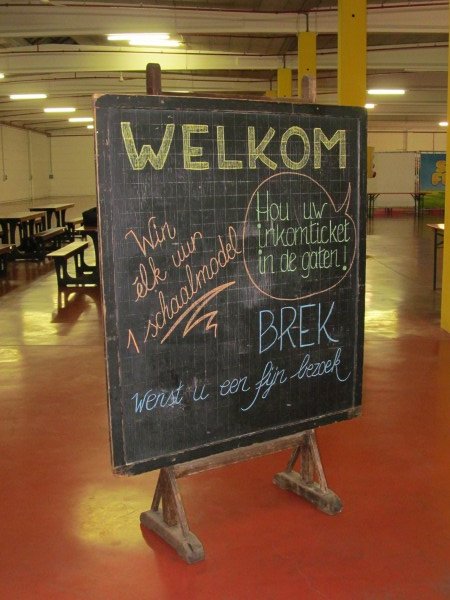 WELKOM
Win
elk uur
1 schaalmodel
Hou uw
inkomticket
in de gaten!
BREK
wenst u een fijn bezoek